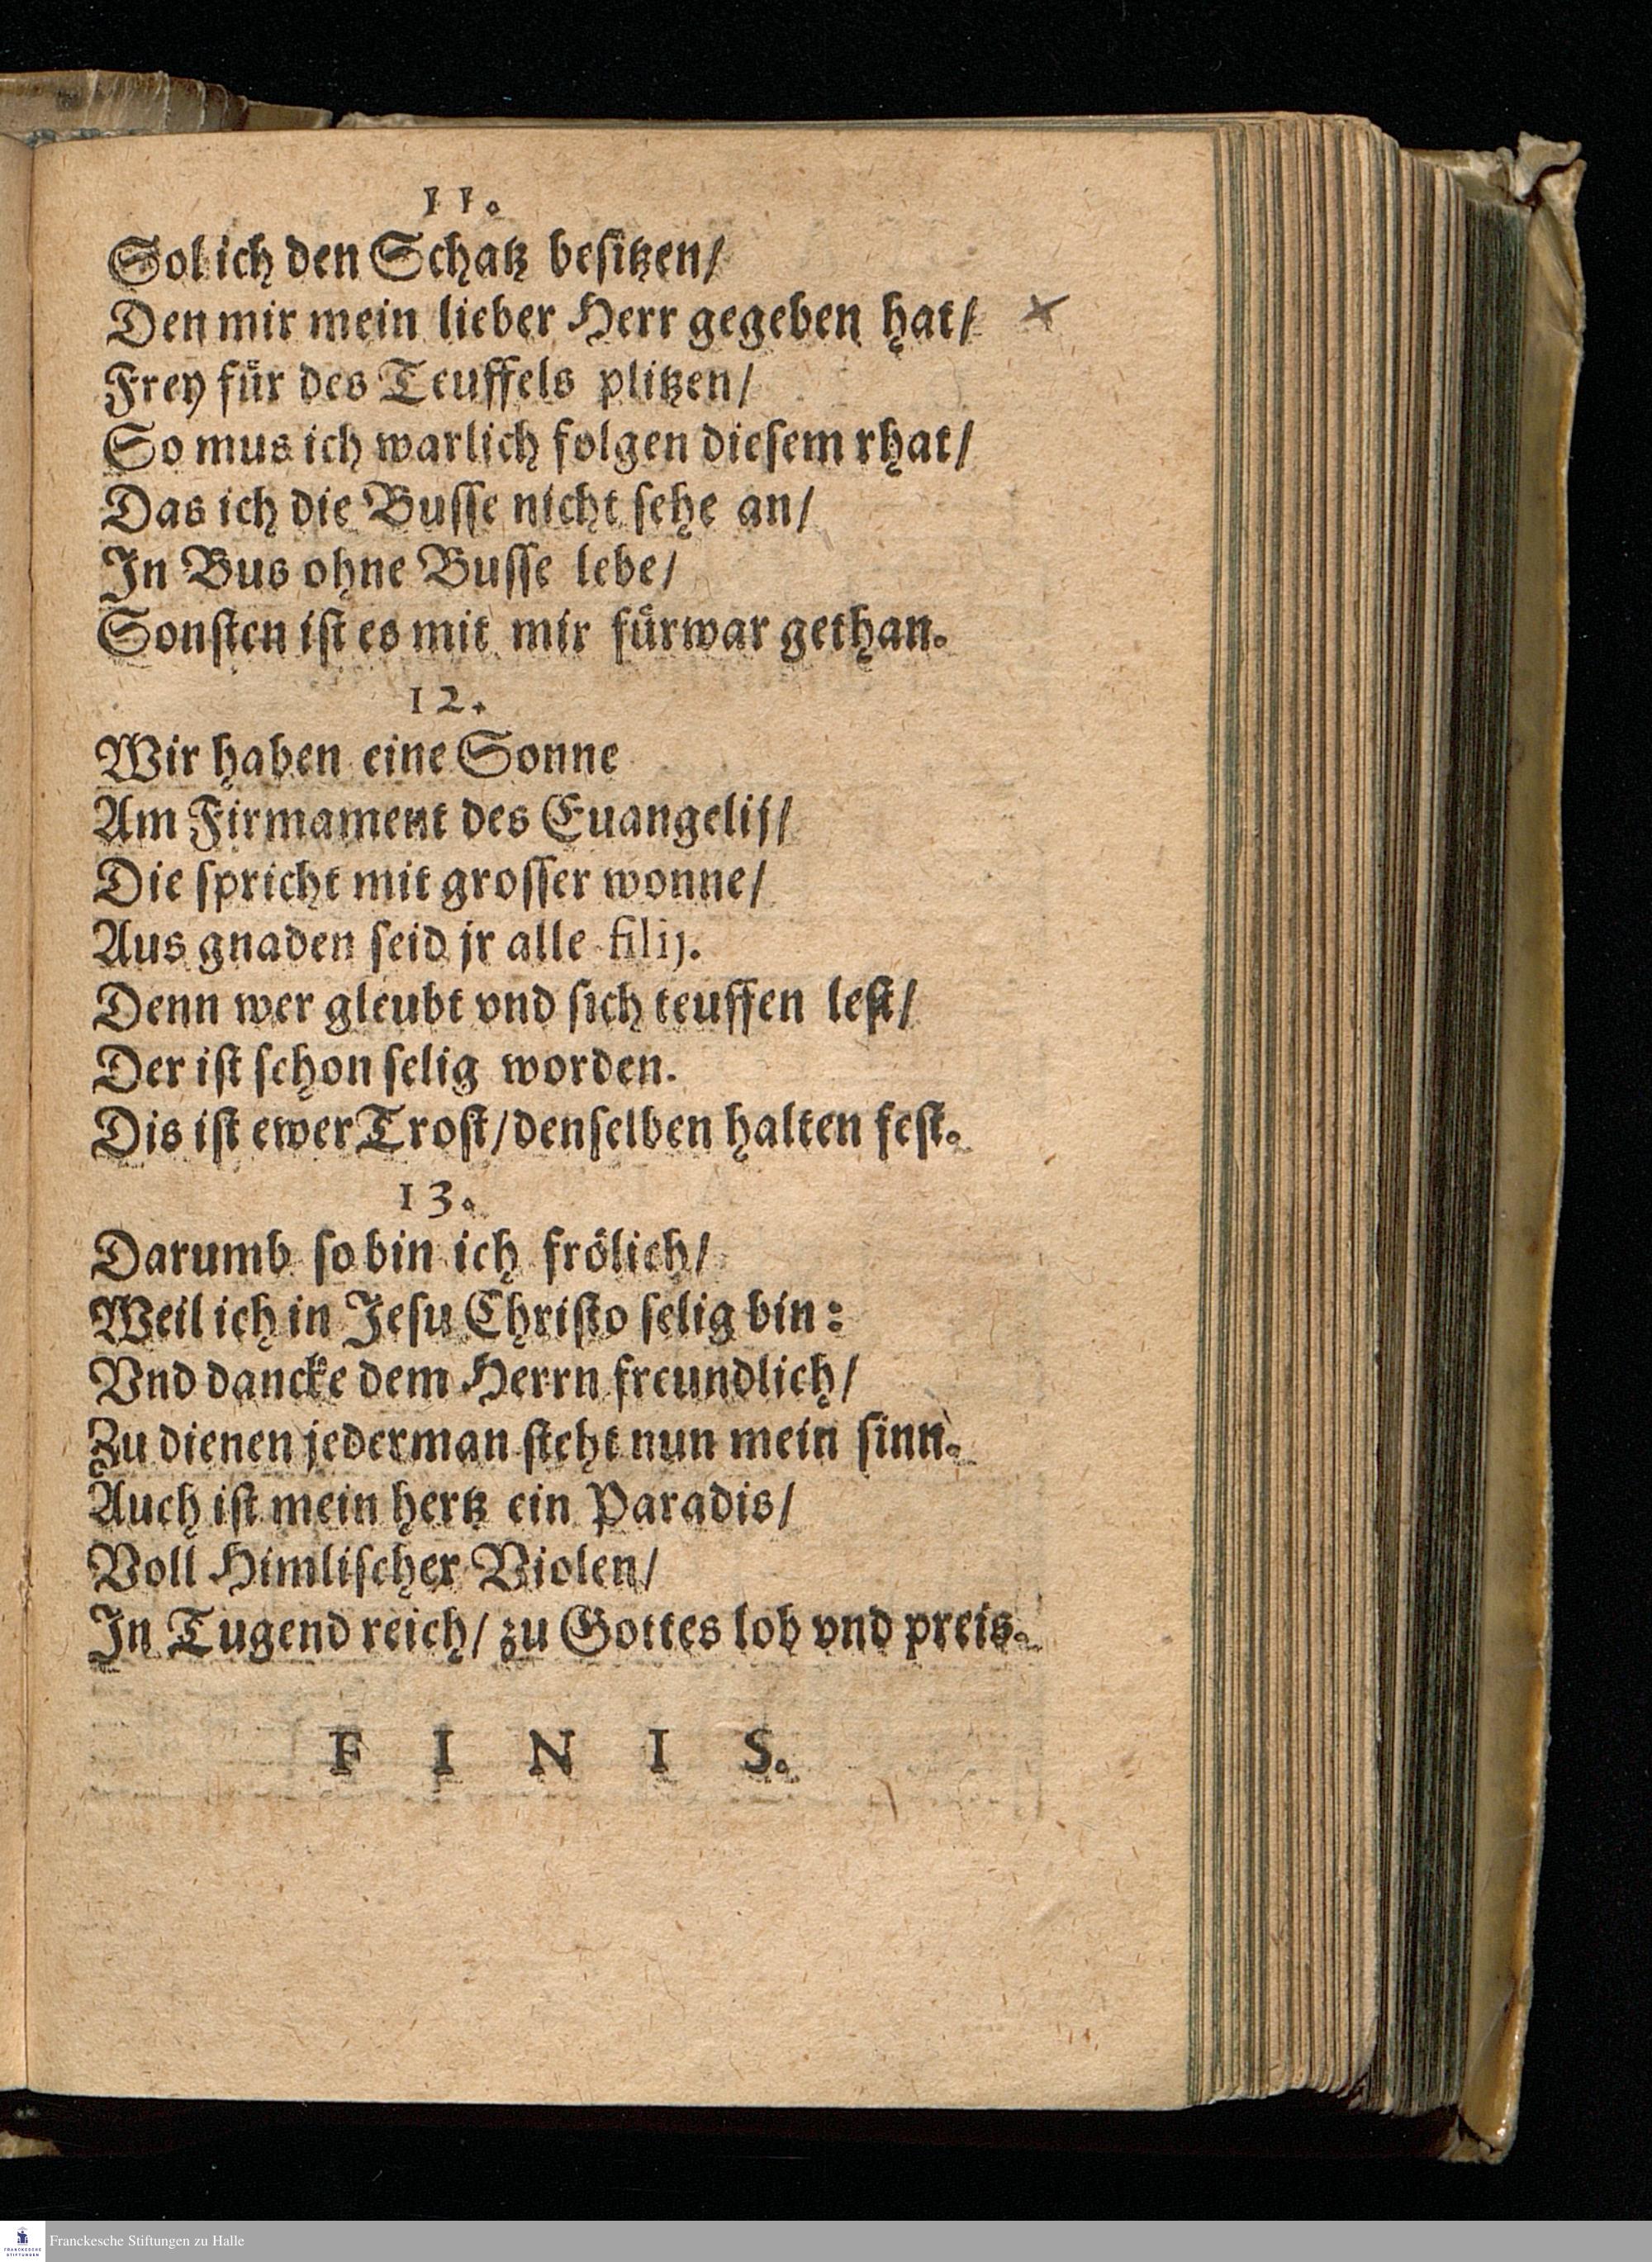 11.
Sol ich den Schatz beſitzen/
Den mir mein lieber Herr gegeben hat/
Frey für des Teuffels plitzen/
So mus ich warlich folgen dieſem rhat/
Das ich die Buſſe nicht ſehe an/
In Bus ohne Buſſe lebe/
Sonſten iſt es mit mir fürwar gethan.
12.
Wir haben eine Sonne
Am Firmament des Euangelij/
Die ſpricht mit groſſer wonne/
Aus gnaden ſeid jr alle filij.
Denn wer gleubt vnd ſich teuffen leſt/
Der iſt ſchon ſelig worden.
Dis iſt ewer Troſt/denſelben halten feſt.
13.
Darumb ſo bin ich frölich/
Weil ich in Jeſu Chriſto ſelig bin:
Vnd dancke dem Herrn freundlich/
Zu dienen jederman ſteht nun mein ſinn.
Auch iſt mein hertz ein Paradis/
Voll Himliſcher Violen/
In Tugend reich/ zu Gottes lob vnd preis.
F I N I S.
FRANCKESCHE STIFTUNGEN
Franckesche Stiftungen zu Halle